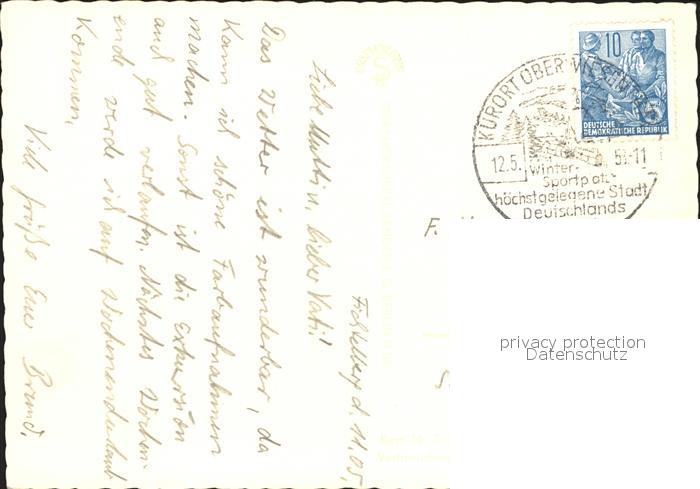 Fichtelberg d. 11.05.
Liebe Mutti u. lieber Vati!
Das Wetter ist wunderbar, da
kann ich schöne Farbaufnahmen
machen. Sonst ist die Exkursion
auch gut verlaufen. Nächstes Wochen-
ende werde ich auf Wochenendurlaub
kommen.
Viele Grüße Euer Bernd.
10
DEUTSCHE
DEMOKRATISCHE REPUBLIK
KURORT OBERWIESENTHAL
12.5. 5 -11
Winter-
Sportplatz
höchstgelegene Stadt
Deutschlands
F.
privacy protection
Datenschutz